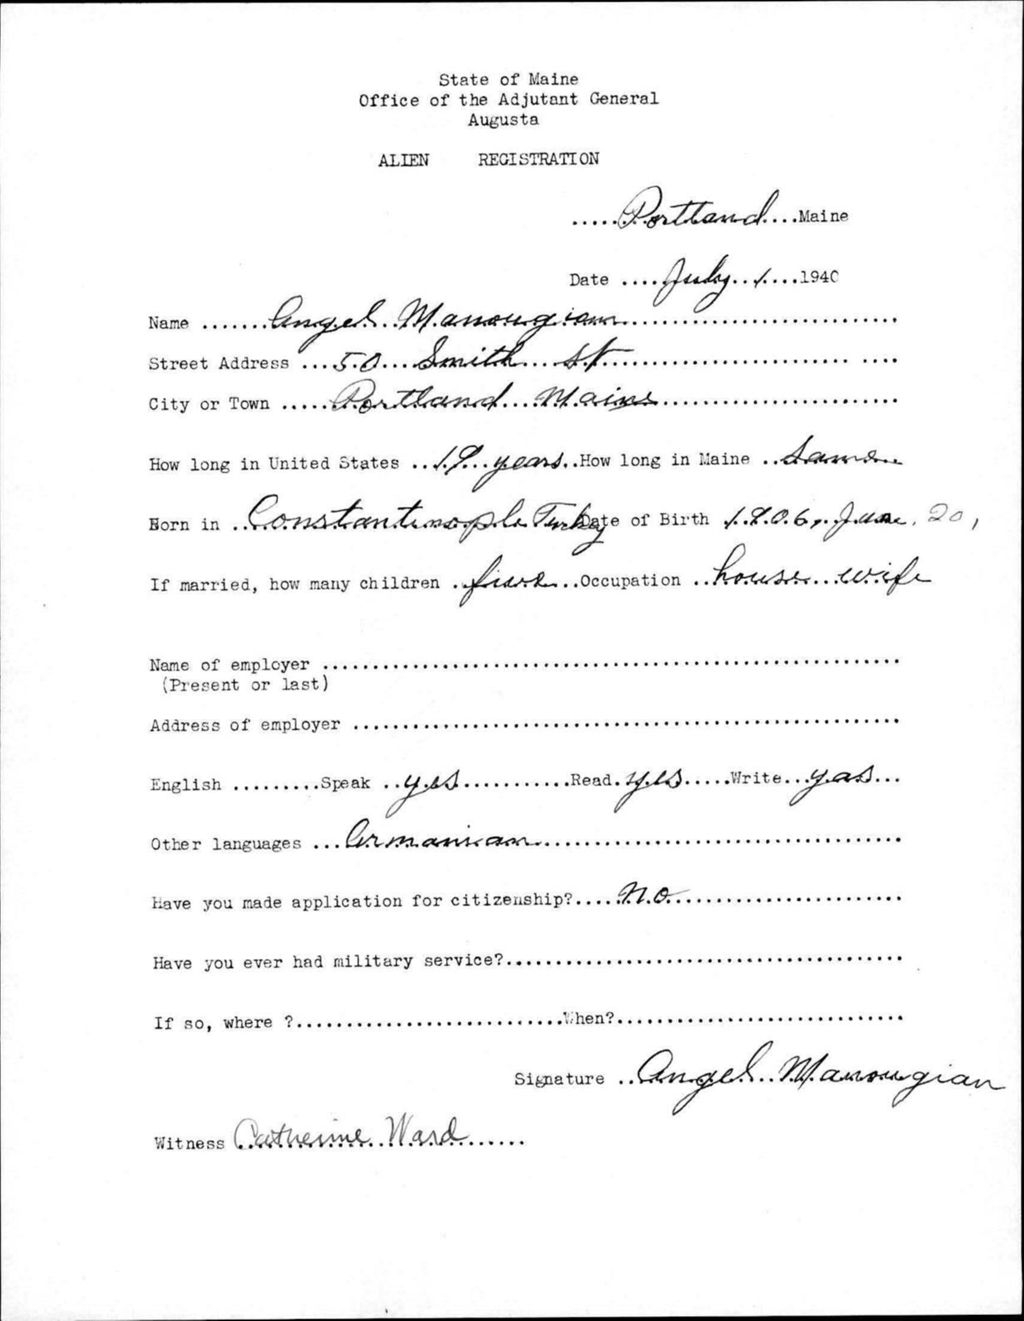 State of Maine
Office of the Adjutant General
Augusta
ALIEN REGISTRATION
.....Portland....Maine
Date ....July..1....1940
Name .......Angel..Manougian............................
Street Address ...50...Smith...St........................ ....
City or Town .....Portland...Maine........................
How long in United States ..19..years..How long in Maine ..Same...
Born in ..Constantinople Turkey Date of Birth 1906, June. 20,
If married, how many children ..five...Occupation ..house...wife
Name of employer ..........................................................
(Present or last)
Address of employer .......................................................
English .........Speak ..yes...........Read.yes.....Write...yas...
Other languages ...Armanian.....................................
Have you made application for citizenship?....No........................
Have you ever had military service?........................................
If so, where ?...........................When?.............................
Signature ..Angel..Manougian
Witness Catherine Ward......